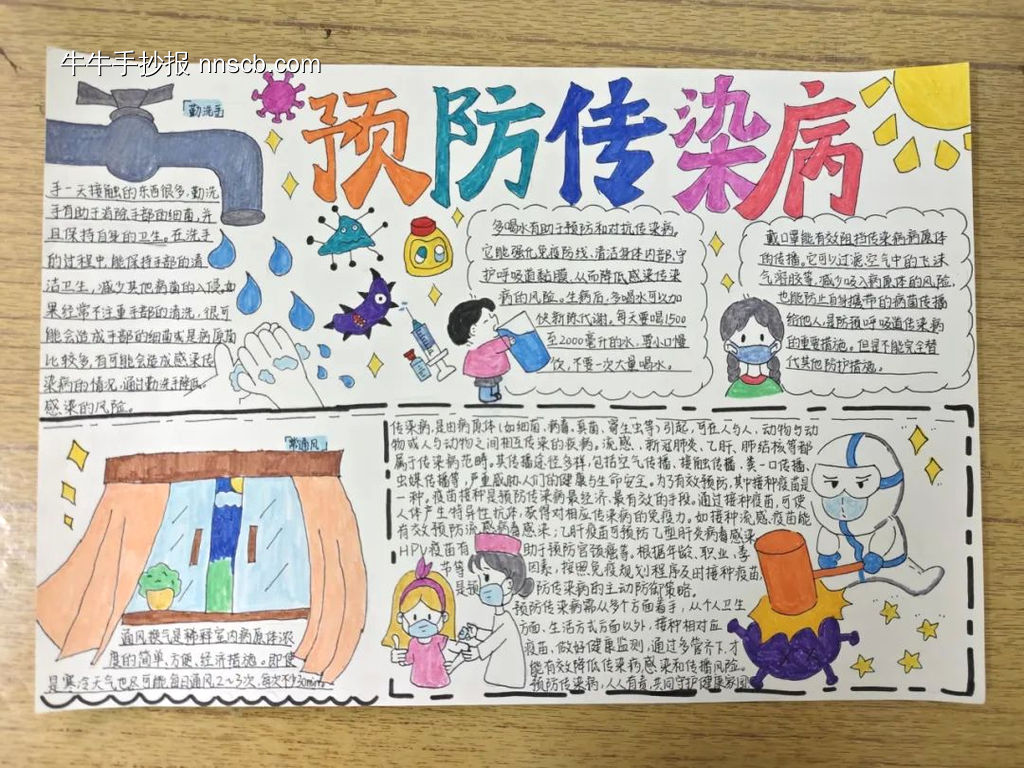 牛牛手抄报 nnscb.com
预防传染病
勤洗手
手一天接触的东西很多,勤洗
手有助于消除手部的细菌,并
且保持自身的卫生。在洗手
的过程中,能保持手部的清
洁卫生,减少其他病菌的入侵,如
果经常不注重手部的清洗,很可
能会造成手部的细菌或是病原菌
比较多,有可能会造成感染传
染病的情况,通过勤洗手降低
感染的风险。
多喝水有助于预防和对抗传染病,
它能强化免疫防线、清洁身体内部、守
护呼吸道黏膜,从而降低感染传染
病的风险。生病后,多喝水可以加
快新陈代谢。每天要喝1500
至2000毫升的水,要小口慢
饮,不要一次大量喝水。
戴口罩能有效阻挡传染病病原体
的传播。它可以过滤空气中的飞沫
气溶胶等,减少吸入病原体的风险
也能防止自身携带的病菌传播
给他人,是防损呼吸道传染病
的重要措施。但是不能完全替
代其他防护措施。
常通风
通风换气是稀释室内病原体浓
度的简单、方便、经济措施。即使
是寒冷天气也尽可能每日通风2~3次,每次不少30min
传染病,是由病原体(如细菌、病毒、真菌、寄生虫等)引起,可在人与人、动物与动
物或人与动物之间相互传染的疾病。流感、新冠肺炎、乙肝、肺结核等都
属于传染病范畴。其传播途径多样,包括空气传播、接触传播、粪一口传播、
虫媒传播等,严重威胁人们的健康与生命安全。为了有效预防,其中接种疫苗是
一种。疫苗接种是预防传染病最经济、最有效的手段。通过接种疫苗,可使
人体产生特异性抗体,获得对相应传染病的免疫力。如接种流感疫苗能
有效预防流感病毒感染;乙肝疫苗可预防乙型肝炎病毒感染
HPV疫苗有 助于预防宫颈癌等。根据年龄、职业、季
节等 因素,按照免疫规划程序及时接种疫苗,
是预 防传染病的主动防御策略。
预防传染病需从多个方面着手,从个人卫生
方面、生活方式方面以外,接种相对应
疫苗,做好健康监测,通过多管齐下,才
能有效降低传染病感染和传播风险。
预防传染病,人人有责,共同守护健康家园